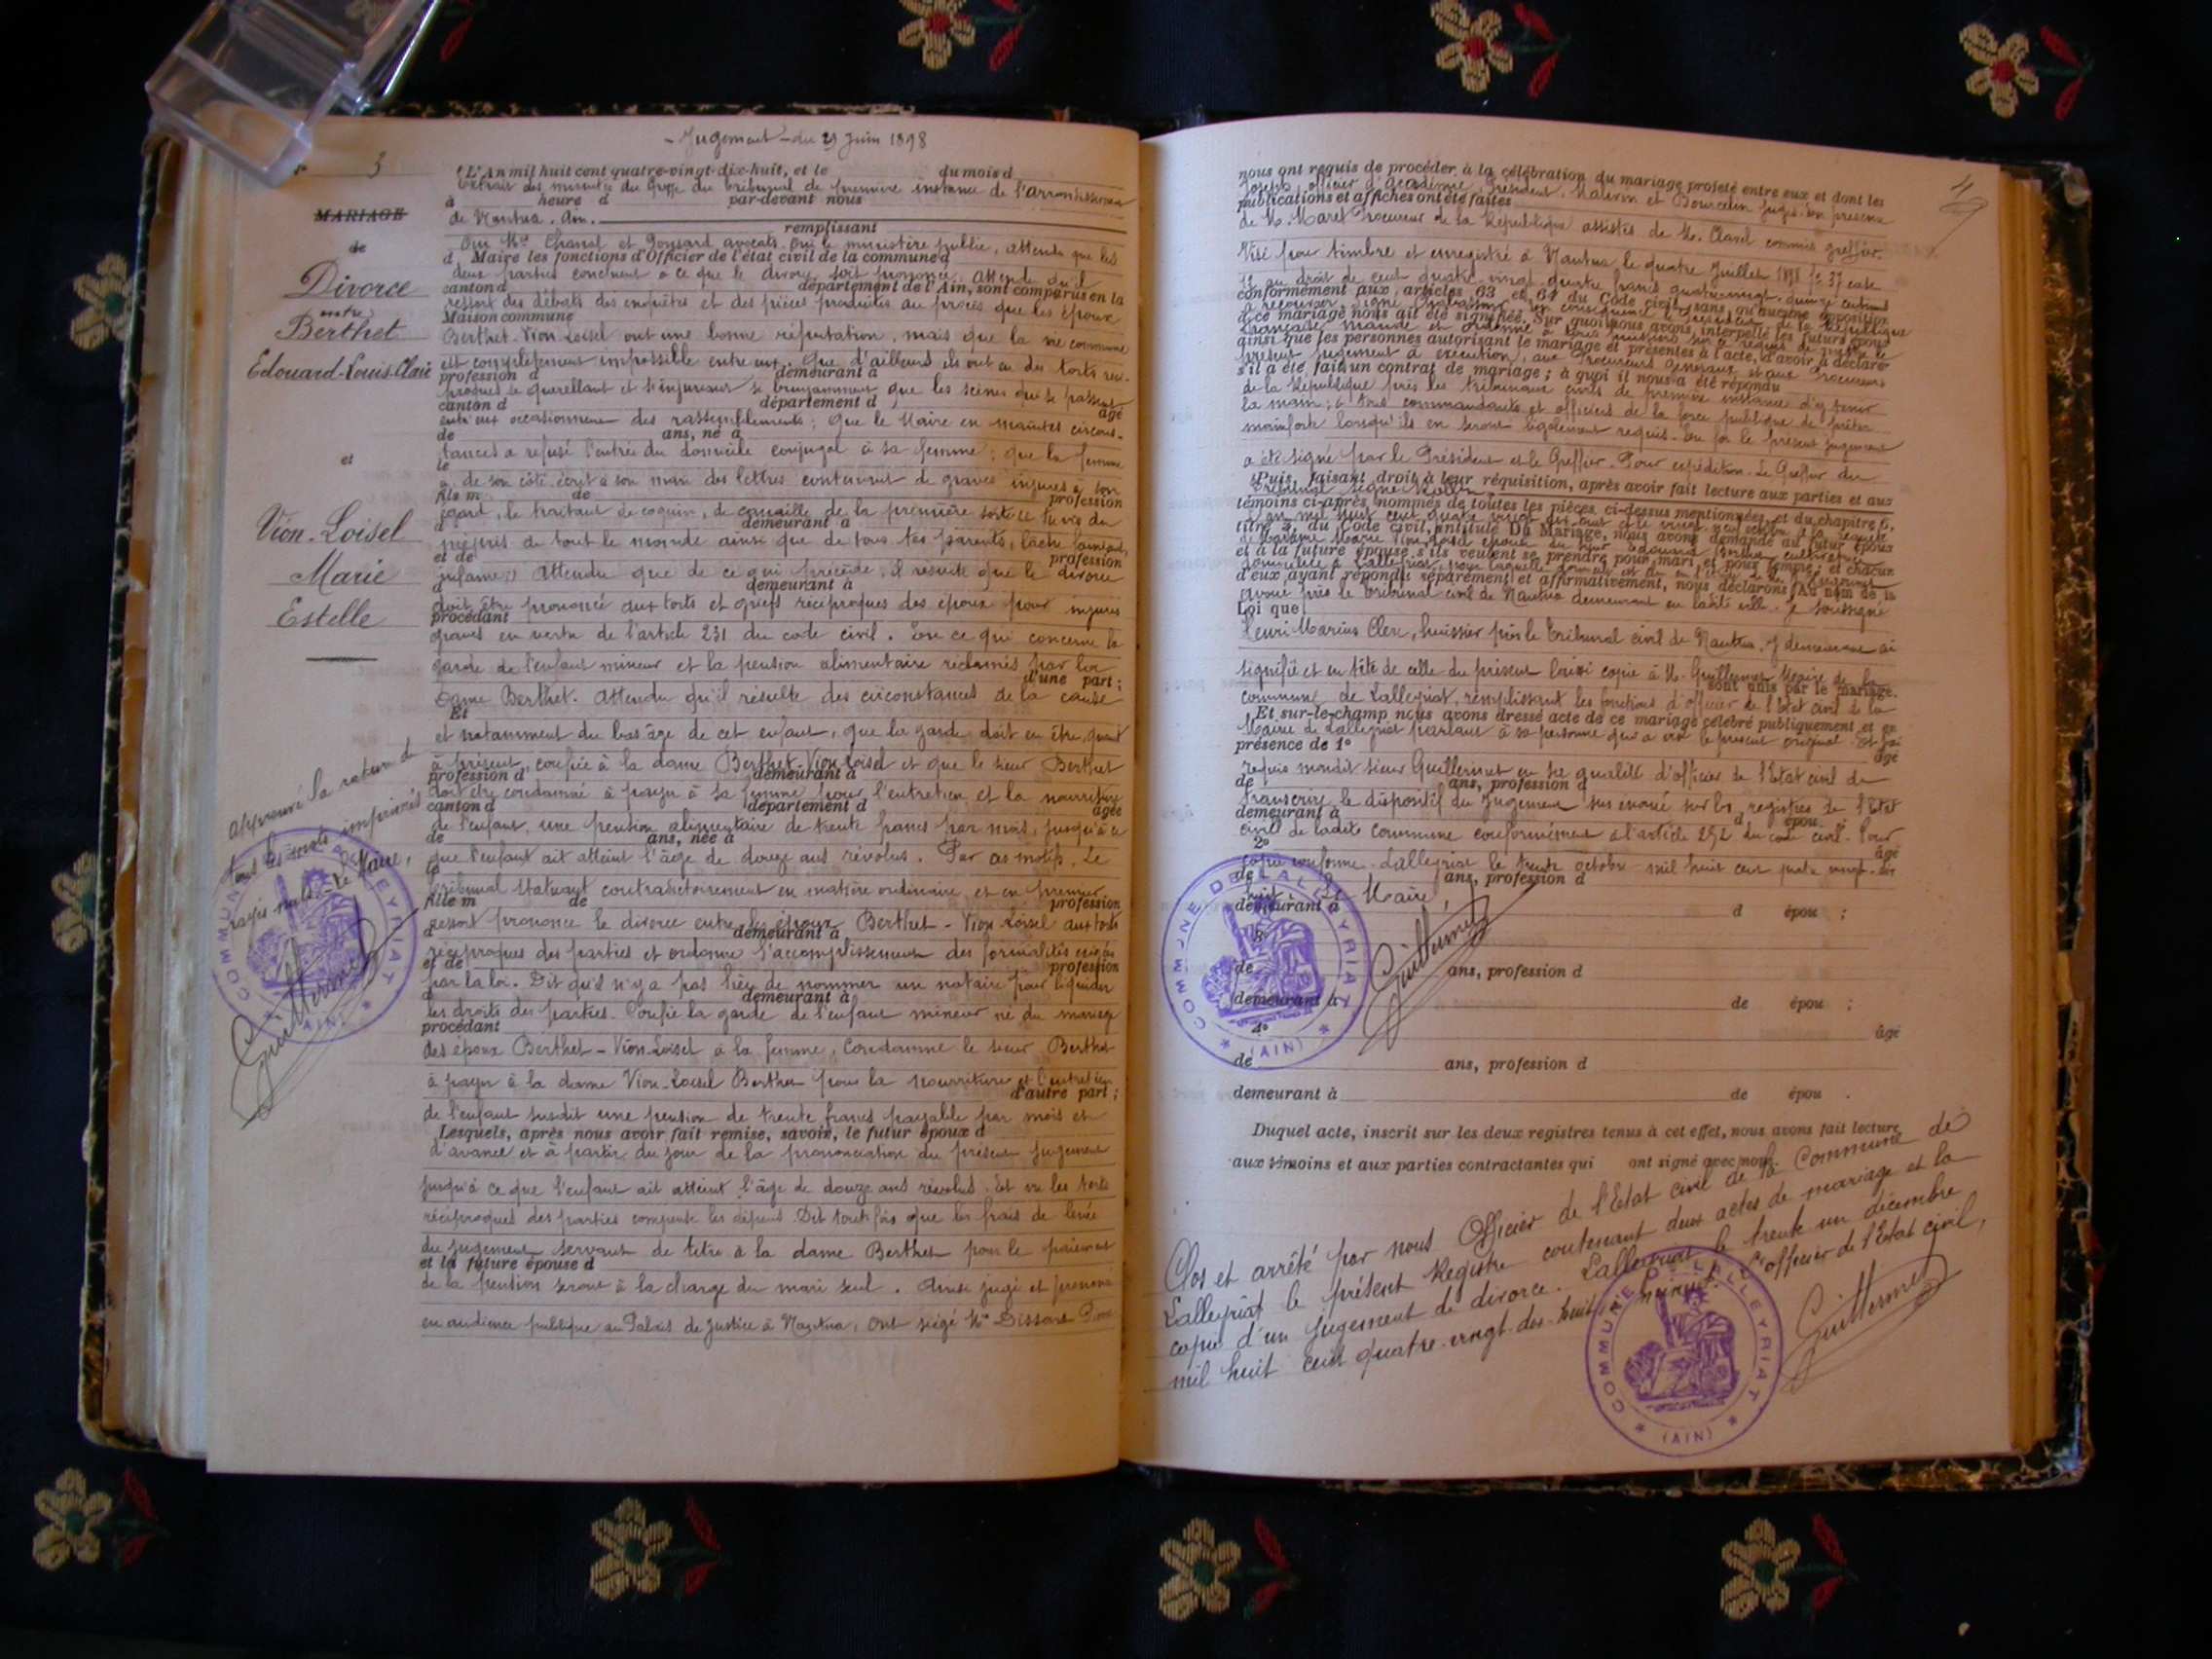 - Jugement - du 29 Juin 1898
3
MARIAGE
de
Divorce
entre
Berthet
Edouard-Louis-Clair
et
Vion-Loisel
Marie
Estelle
approuvé la rature de
tous les mots imprimés
rayés nuls. Le Maire,
Guillermet
COMMUNE DE LALLEYRIAT
(AIN)
L'An mil huit cent quatre-vingt-dix-huit, et le du mois d
Extrait des minutes du Greffe du tribunal de première instance de l'arrondissement
à heure d par-devant nous
de Nantua. Ain.
remplissant
Ouï Mes Chanal et Goussard avocats. Ouï le ministère public, attendu que les
d Maire les fonctions d'Officier de l'état civil de la commune d
deux parties concluent à ce que le divorce soit prononcé. Attendu qu'il
canton d département de l'Ain, sont comparus en la
ressort des débats des enquêtes et des pièces produites au procès que les époux
Maison commune
Berthet-Vion-Loisel ont une bonne réputation, mais que la vie commune
est complètement impossible entre eux. Que d'ailleurs ils ont eu des torts reci-
profession d demeurant à
proques se querellant et s'injuriant si bruyamment que les scènes qui se passent
canton d département d âgé
entre eux occasionnent des rassemblements; Que le Maire en maintes circons-
de ans, né à
tances a refusé l'entrée du domicile conjugal à sa femme; que la femme
le
a de son côté écrit à son mari des lettres contenant de graves injures à son
fils m de profession
égard, le traitant de coquin, de canaille de la première sorte
d demeurant à
mépris de tout le monde ainsi que de tous tes parents, lâche
et de profession
infame;) Attendu que de ce qui précède, il résulte que le divorce
d demeurant à
doit être prononcé aux torts et griefs réciproques des époux pour injures
procédant
graves en vertu de l'article 231 du code civil. En ce qui concerne la
garde de l'enfant mineur et la pension alimentaire réclamés par la
d'une part;
Dame Berthet. Attendu qu'il résulte des circonstances de la cause
Et
et notamment du bas âge de cet enfant, que la garde doit en être, quant
à présent, confiée à la dame Berthet-Vion-Loisel et que le sieur Berthet
profession d demeurant à
doit être condamné à payer à sa femme pour l'entretien et la nourriture
canton d département d âgée
de l'enfant, une pension alimentaire de trente francs par mois, jusqu'à ce
de ans, née à
que l'enfant ait atteint l'âge de douze ans révolus. Par ces motifs. Le
le
Tribunal statuant contradictoirement en matière ordinaire et en premier
fille m de profession
ressort prononce le divorce entre les époux Berthet - Vion-Loisel aux torts
d demeurant à
réciproques des parties et ordonne l'accomplissement des formalités exigées
et de profession
par la loi. Dit qu'il n'y a pas lieu de nommer un notaire pour liquider
d demeurant à
les droits des parties. Confie la garde de l'enfant mineur né du mariage
procédant
des époux Berthet - Vion-Loisel à la femme, Condamne le sieur Berthet
à payer à la dame Vion-Loisel Berthet pour la nourriture et l'entretien
d'autre part;
de l'enfant susdit une pension de trente francs payable par mois et
Lesquels, après nous avoir fait remise, savoir, le futur époux d
d'avance et à partir du jour de la prononciation du présent jugement
jusqu'à ce que l'enfant ait atteint l'âge de douze ans révolus. Et vu les torts
réciproques des parties compense les dépens. Dit toutefois que les frais de levée
du jugement servant de titre à la dame Berthet pour le paiement
et la future épouse d
de la pension seront à la charge du mari seul. Ainsi jugé et prononcé
en audience publique au Palais de Justice à Nantua, ont siégé Mrs Dissard
49
nous ont requis de procéder à la célébration du mariage projeté entre eux et dont les
Joseph, officier d'académie, Président, Malerin et Bourcelin juges. En présence
publications et affiches ont été faites
de M. Maret Procureur de la République assistés de M. Clavel commis greffier.
Visé pour timbre et enregistré à Nantua le quatre Juillet 1898 fo 37 case
au droit de cent quatre vingt quatre francs quatre-vingt-quinze centimes
conformément aux articles 63 et 64 du Code civil, sans qu'aucune opposition
à ce mariage nous ait été signifiée. Sur quoi nous avons interpellé les futurs époux
ainsi que les personnes autorisant le mariage et présentes à l'acte, d'avoir à déclarer
présent jugement à exécution, aux Procureurs Généraux et aux Procureurs
s'il a été fait un contrat de mariage; à quoi il nous a été répondu
de la République près les tribunaux civils de première instance d'y tenir
la main; à tous commandants et officiers de la force publique de prêter
mainforte lorsqu'ils en seront légalement requis. En foi le présent jugement
a été signé par le Président et le Greffier. Pour expédition. Le Greffier du
Puis, faisant droit à leur réquisition, après avoir fait lecture aux parties et aux
témoins ci-après nommés de toutes les pièces ci-dessus mentionnées et du chapitre 6,
titre 5, du Code civil, intitulé Du Mariage, nous avons demandé au futur époux
et à la future épouse s'ils veulent se prendre pour mari et pour femme; et chacun
d'eux ayant répondu séparément et affirmativement, nous déclarons Au nom de la
avoué près le tribunal civil de Nantua demeurant en ladite ville. Je soussigné
Loi que
Henri Marius Clerc, huissier près le tribunal civil de Nantua, y demeurant ai
signifié et en tête de celle du présent laissé copie à M. Guillermet Maire de la
sont unis par le mariage.
commune de Lalleyriat, remplissant les fonctions d'officier de l'Etat civil de la
Et sur-le-champ nous avons dressé acte de ce mariage célébré publiquement et en
Mairie de Lalleyriat parlant à sa personne qui a visé le présent original Et j'ai
présence de 1° âgé
requis mondit sieur Guillermet en sa qualité d'officier de l'Etat civil de
de ans, profession d
transcrire le dispositif du Jugement sus énoncé sur les registres de l'Etat
demeurant à d épou ;
civil de ladite commune conformément à l'article 252 du code civil. Pour
2° âgé
copie conforme. Lalleyriat le trente octobre mil huit cent quatre vingt-dix
de ans, profession d
huit. Le Maire,
demeurant à d épou ;
Guillermet
COMMUNE DE LALLEYRIAT
(AIN)
3°
de ans, profession d
demeurant à de épou ;
4° âgé
de ans, profession d
demeurant à de épou .
Duquel acte, inscrit sur les deux registres tenus à cet effet, nous avons fait lecture
aux témoins et aux parties contractantes qui ont signé avec nous.
Clos et arrêté par nous Officier de l'Etat civil de la Commune de
Lalleyriat le présent Registre contenant deux actes de mariage et la
copie d'un jugement de divorce. Lalleyriat le trente un décembre
mil huit cent quatre-vingt-dix-huit, minuit. L'officier de l'Etat civil,
Guillermet
COMMUNE DE LALLEYRIAT
(AIN)